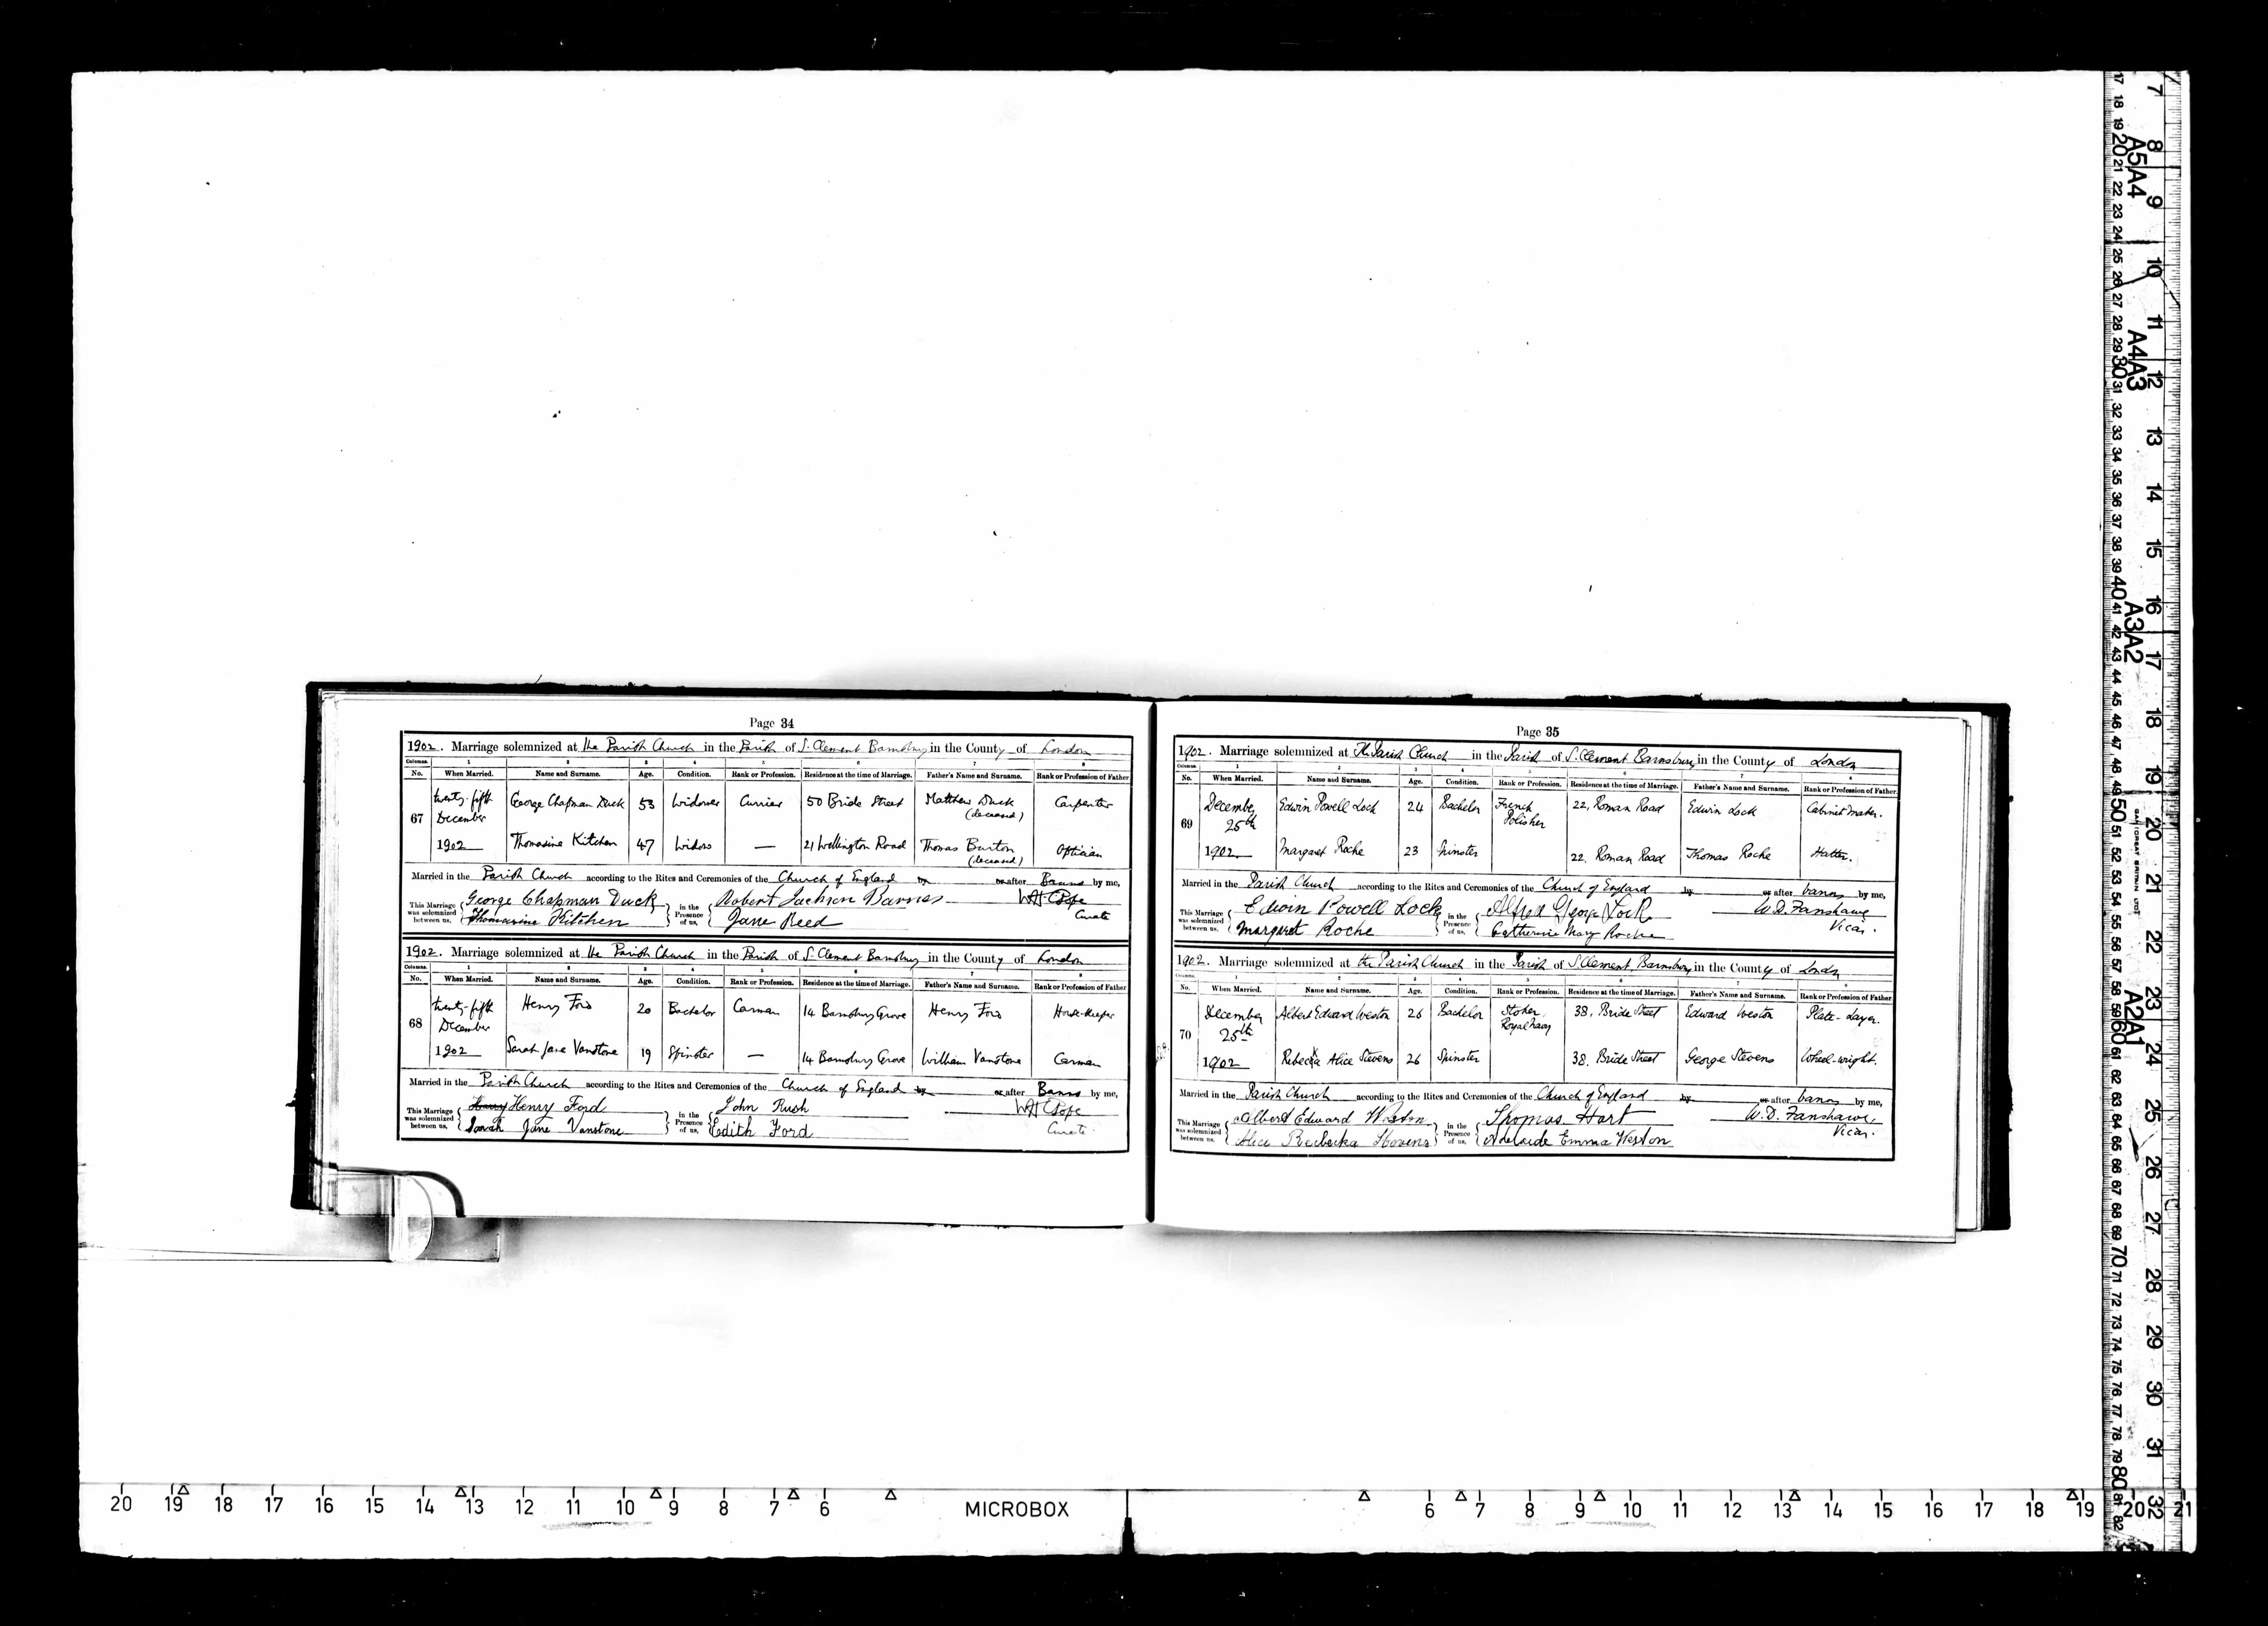 Page 34
1902. Marriage solemnized at the Parish Church in the Parish of S. Clement Barnsbury in the County of London
Columns. 1 2 3 4 5 6 7 8
No. When Married. Name and Surname. Age. Condition. Rank or Profession. Residence at the time of Marriage. Father's Name and Surname. Rank or Profession of Father
twenty-fifth George Chapman Duck 53 Widower Currier 50 Bride Street Matthew Duck Carpenter
67 December (deceased)
1902 Thomasine Kitchen 47 Widow — 21 Wellington Road Thomas Burton Optician
(deceased)
Married in the Parish Church according to the Rites and Ceremonies of the Church of England by or after Banns by me,
This Marriage was solemnized between us, George Chapman Duck in the Presence of us, Robert Jackson Barnes W H C Pope
Thomasine Kitchen Jane Reed Curate
1902. Marriage solemnized at the Parish Church in the Parish of S. Clement Barnsbury in the County of London
Columns. 1 2 3 4 5 6 7 8
No. When Married. Name and Surname. Age. Condition. Rank or Profession. Residence at the time of Marriage. Father's Name and Surname. Rank or Profession of Father
twenty-fifth Henry Ford 20 Bachelor Carman 14 Barnsbury Grove Henry Ford House-keeper
68 December
1902 Sarah Jane Vanstone 19 Spinster — 14 Barnsbury Grove William Vanstone Carman
Married in the Parish Church according to the Rites and Ceremonies of the Church of England by or after Banns by me,
This Marriage was solemnized between us, Harry Henry Ford in the Presence of us, John Rush W H C Pope
Sarah Jane Vanstone Edith Ford Curate
Page 35
1902. Marriage solemnized at The Parish Church in the Parish of S. Clement Barnsbury in the County of London
Columns. 1 2 3 4 5 6 7 8
No. When Married. Name and Surname. Age. Condition. Rank or Profession. Residence at the time of Marriage. Father's Name and Surname. Rank or Profession of Father.
December Edwin Powell Lock 24 Bachelor French Polisher 22, Roman Road Edwin Lock Cabinet maker.
69 25th
1902 Margaret Roche 23 Spinster 22. Roman Road Thomas Roche Hatter.
Married in the Parish Church according to the Rites and Ceremonies of the Church of England by or after banns by me,
This Marriage was solemnized between us, Edwin Powell Lock in the Presence of us, Alfred George Lock W. D. Fanshawe
Margaret Roche Catherine Mary Roche Vicar.
1902. Marriage solemnized at the Parish Church in the Parish of S. Clement, Barnsbury in the County of London
Columns. 1 2 3 4 5 6 7 8
No. When Married. Name and Surname. Age. Condition. Rank or Profession. Residence at the time of Marriage. Father's Name and Surname. Rank or Profession of Father
December Albert Edward Weston 26 Bachelor Stoker Royal Navy 38, Bride Street Edward Weston Plate-Layer.
70 25th
1902 Rebecka Alice Stevens 26 Spinster 38. Bride Street George Stevens Wheel-wright.
Married in the Parish Church according to the Rites and Ceremonies of the Church of England by or after banns by me,
This Marriage was solemnized between us, Albert Edward Weston in the Presence of us, Thomas Hart W. D. Fanshawe,
Alice Rebecka Stevens Adelaide Emma Weston Vicar.
20 19 18 17 16 15 14 13 12 11 10 9 8 7 6 MICROBOX 6 7 8 9 10 11 12 13 14 15 16 17 18 19 20 21
7 8 9 10 11 12 13 14 15 16 17 18 19 20 21 22 23 24 25 26 27 28 29 30 31 32
A5A4 A4A3 A3A2 A2A1